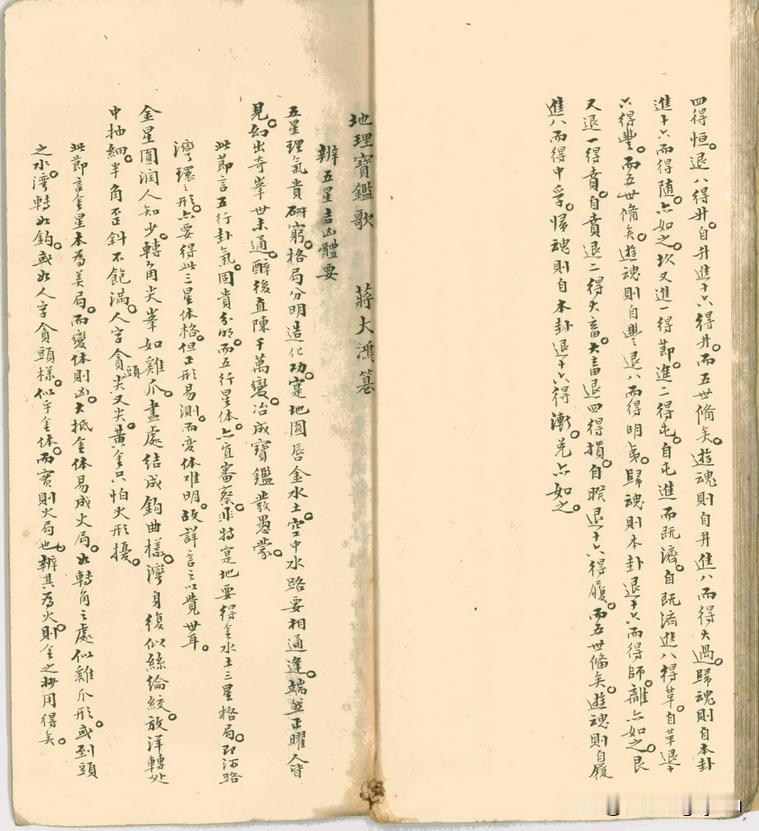 四得恒。退八得升。自升進十六得井。而五世備矣。遊魂則自井進八而得大過。歸魂則自本卦
進十六而得隨。六如之。坎又進一得節。進二得屯。自屯進而既濟。自既濟進八得革。自革退十
六得豐。而五世備矣。遊魂則自豐退八而得明夷。歸魂則本卦退十六而得師。離六如之。艮
又退一得賁。自賁退二得大畜。大畜退四得損。自睽退十六得履。而五世備矣。遊魂則自履
進八而得中孚。歸魂則自本卦退十六得漸。兌六如之。
地理寶鑑歌 蔣大鴻篡
辨五星吉凶體要
五星理氣貴研窮。格局分明造化功。寔地圓唇金水土。空中水路要相通逢。端然正曜人皆
見。幻出奇峯世未通。醉後直陳千萬變。冶成寶鑑發愚蒙。
此節言五行卦氣。固貴分明。而五行星体。六宜審察。非特寔地要得金水土三星格局。即河路
灣環之形。六要得此三星体格。但正形易測。而变体难明。故詳言之以覺世耳。
金星圓潤人知少。轉角尖峯如雞爪。盡處結成鈎曲樣。灣身復似絲綸絞。放洋轉处
中抽細。半角歪斜不飽滿。人字貪頭尖又尖。黄金只怕火形擾。
此節言金星本為美局。而變体則凶。大抵金体易成火局。如轉角之處似雞爪形。或到頭
之水灣轉如鈎。或如人字貪頭樣。似乎金体。而實則火局也。辨其為火。則金之妙用得矣。